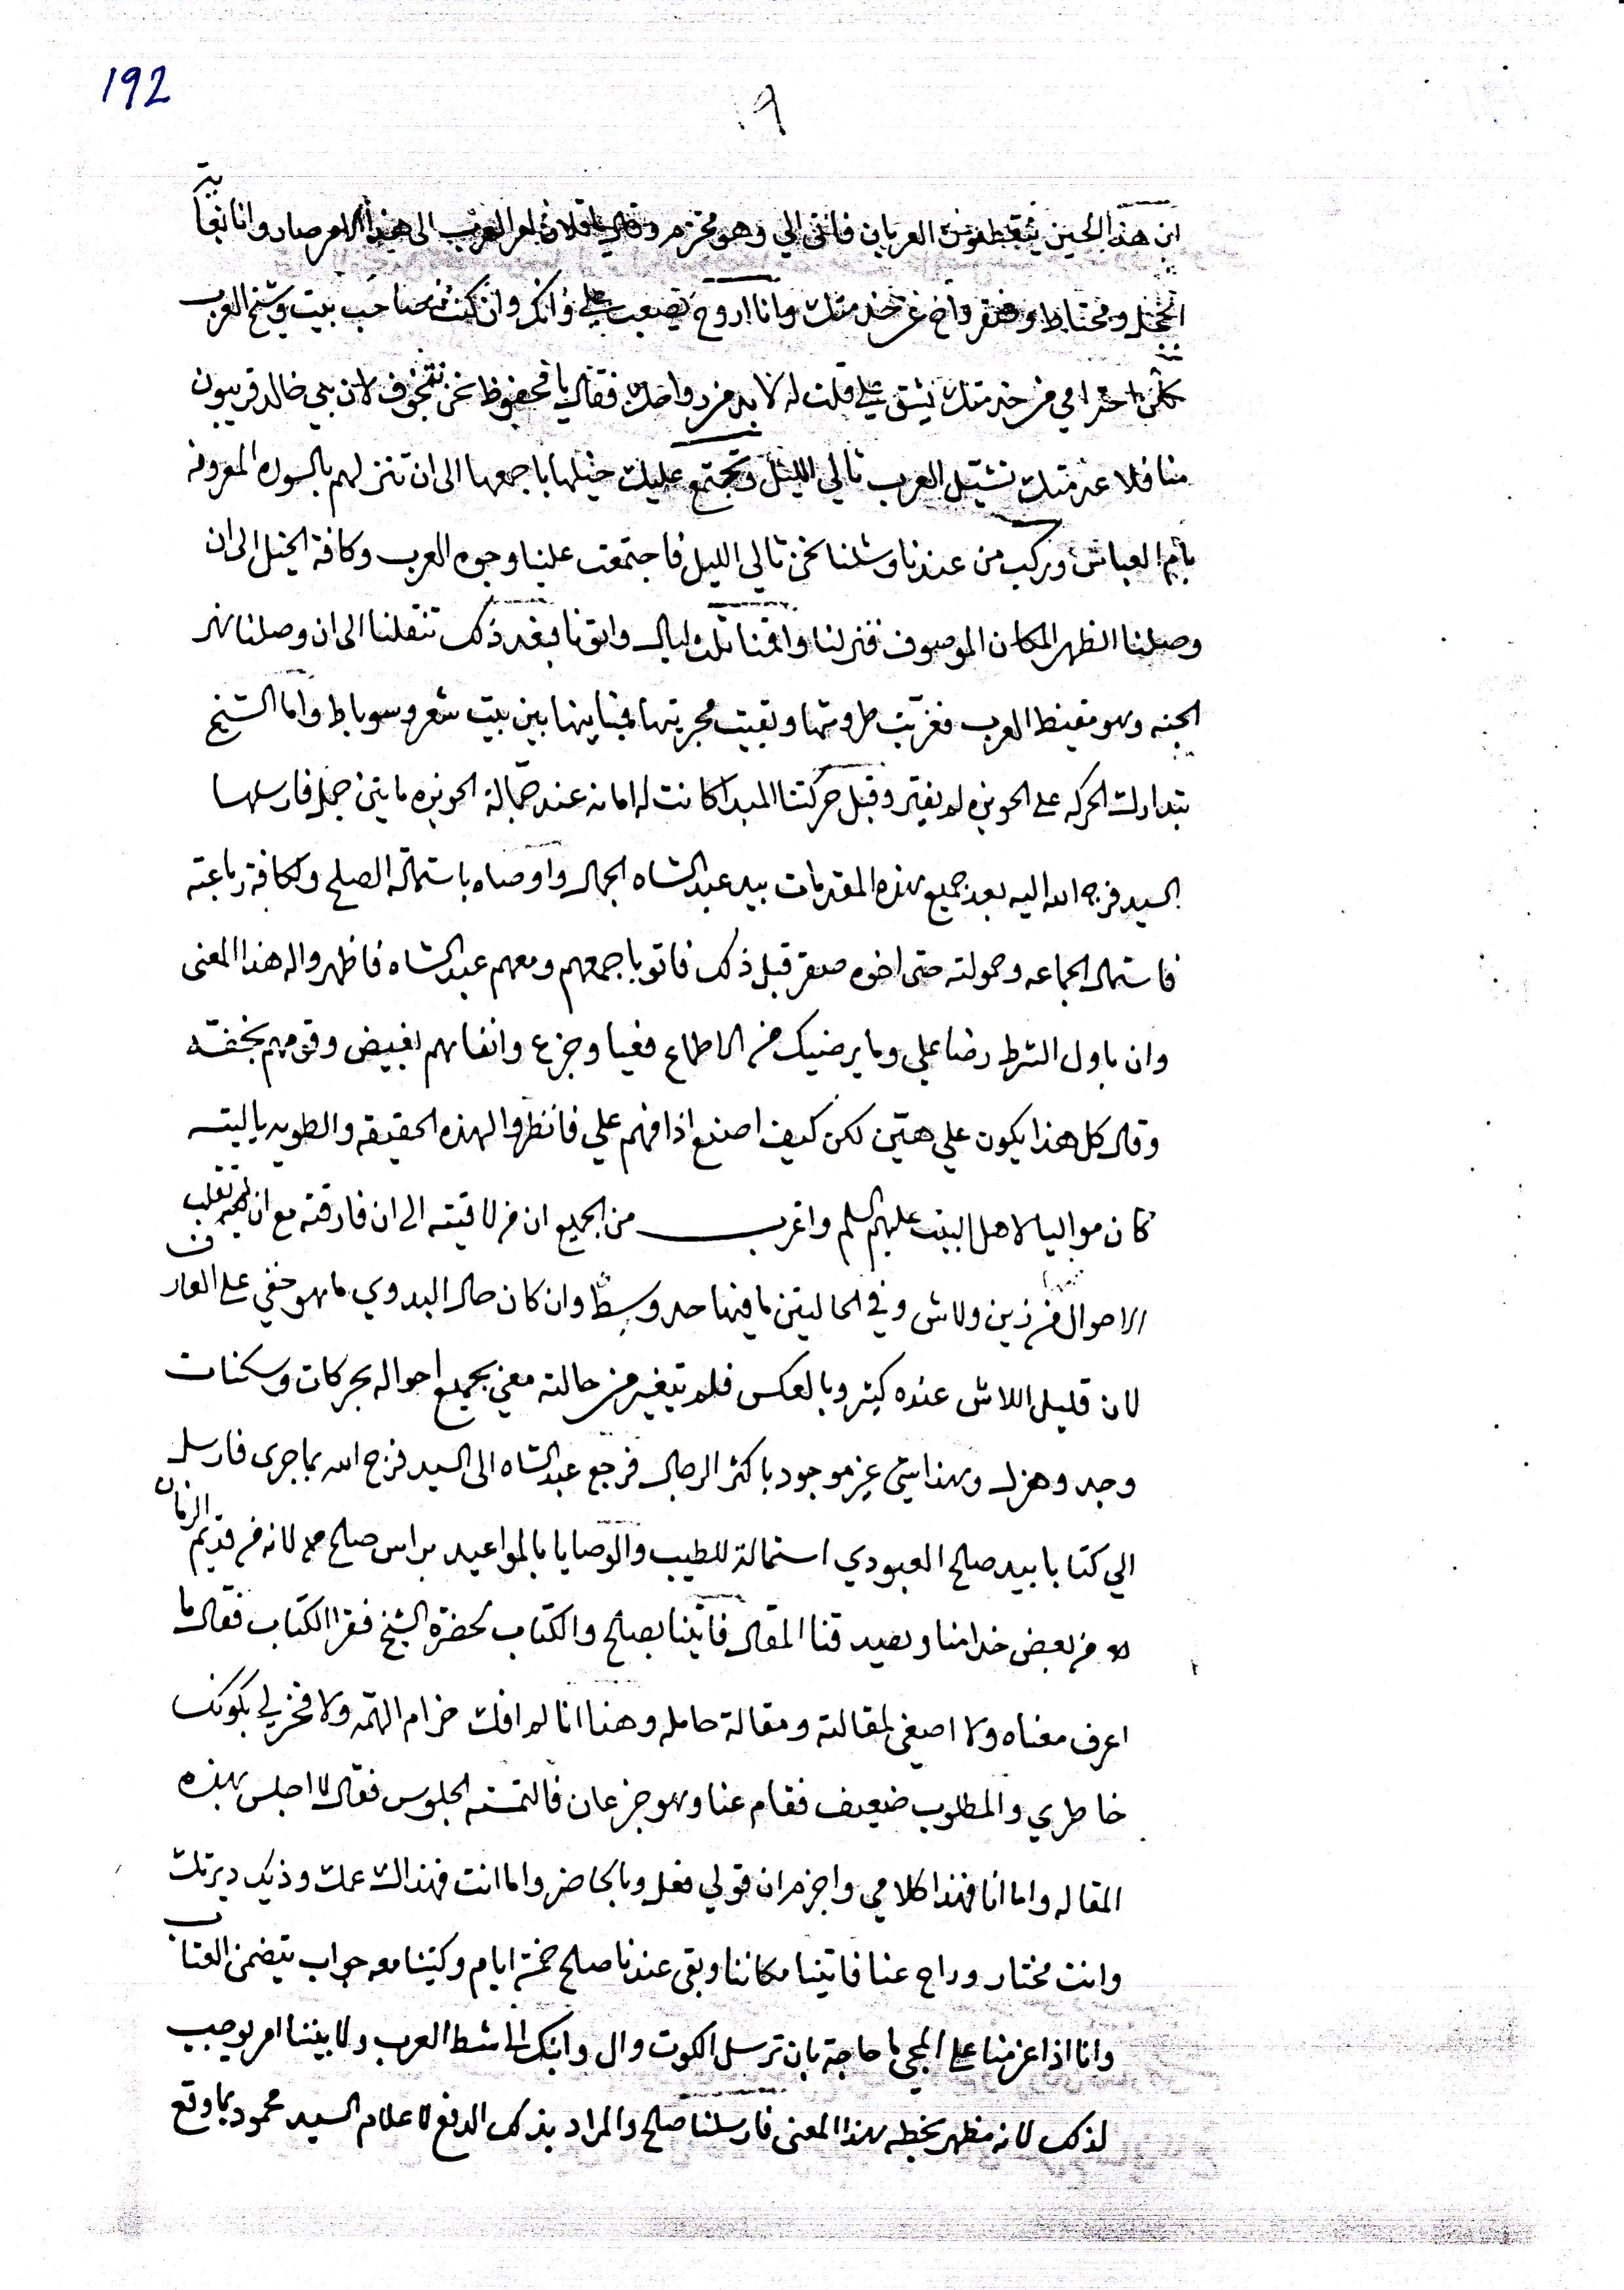 192
ان هذا الحين العربان فاتى الي وهو محتزم وقال يا فلان الى هذا الامر صار وانا
ومحتاط وانا اروح يصعب علي وانك وان كنت صاحب بيت وشيخ العرب
احترامي من خدمتك يشق علي قلت له لا بد من رواحك فقال يا محفوظ نحن نتخوف لان بني خالد قريبون
منا فلا عزمتك نشيل العرب تالي الليل وتجتمع عليك خيلها باجمعها الى ان تنزلهم بالسوده المعروفه
بام العباس وركب من عندنا وشلنا نحن تالي الليل فاجتمعت علينا وجوه العرب وكافة الخيل الى ان
وصلنا الظهر المكان الموصوف فنزلنا واقمنا ثلث ليال واتونا فبعد ذلك تنقلنا الى ان وصلنا نهر
الجنه وهو مقيظ العرب فغربت طروشها وبقيت بين بيت شعر وسوباط واما الشيخ
بتدارك الحركه على الحويزه لم يفتر وقبل حركتنا المبدا كانت له امانه عند جمالة الحويزه مايتين جمل فارسلها
السيد فرج الله اليه بعد جميع هذه المقدمات بيد عبد الشاه الجمال واوصاه باستمالة الصلح ولكافة رباعته
فاستمال الجماعه وحمولته حتى اخوه صقر قبل ذلك فاتو باجمعهم ومعهم عبد الشاه فاظهروا له هذا المعنى
وان باول الشرط رضا علي وما يرضيك من الاطماع فعيا وجزع وانفاهم بغيض وقومهم بخفته
وقال كل هذا يكون علي هين لكن كيف اصنع اذا فهم علي فانظروا لهذه الحقيقه والطويه ياليته
كان مواليا لاهل البيت عليهم السلم واغرب من الجميع ان من لاقيته الى ان فارقته مع ان تقلب
الاحوال من زين ولاش وفي الحاليتن ما فيها حد وسط وان كان حال البدوي ما هو خفي على العارف
لان قليل اللاش عنده كثير وبالعكس فلم يتغير من حالته معي بجميع احواله بحركات وسكنات
وجد وهزل وهذا شي غير موجود باكثر الرجال فرجع عبد الشاه الى السيد فرج الله بما جرى فارسل
الي كتابا بيد صلح العبودي استمالة للطيب والوصايا بالمواعيد براس صلح لانه من قديم الزمان
هو من بعض خدامنا وبصيد قنا المقال فاتينا بصلح والكتاب بحضرة الشيخ فقرا الكتاب فقال ما
اعرف معناه ولا اصغي لمقالته ومقالة حامله وهنا انا لم افك حزام الهمه ولا فخر لي بكونك
خاطري والمطلوب ضعيف فقام عنا وهو جزعان فالتمسته الجلوس فقال لا اجلس بهذه
المقاله واما انا فهذا كلامي واجزم ان قولي فعل وبالحاضر واما انت فهذاك عمك وذيك ديرتك
وانت مختار وراح عنا فاتينا مكاننا وبقى عندنا صلح خمسة ايام وكتبنا معه جواب يتضمن العتاب
وانا اذا عزمنا على المجي ما حاجة بان ترسل الكوت وال وانك الى شط العرب ولا بيننا امر يوجب
لذلك لانه مظهر بخطه هذا المعنى فارسلنا صلح والمراد بذلك الدفع لاعلام السيد محمود بما وقع